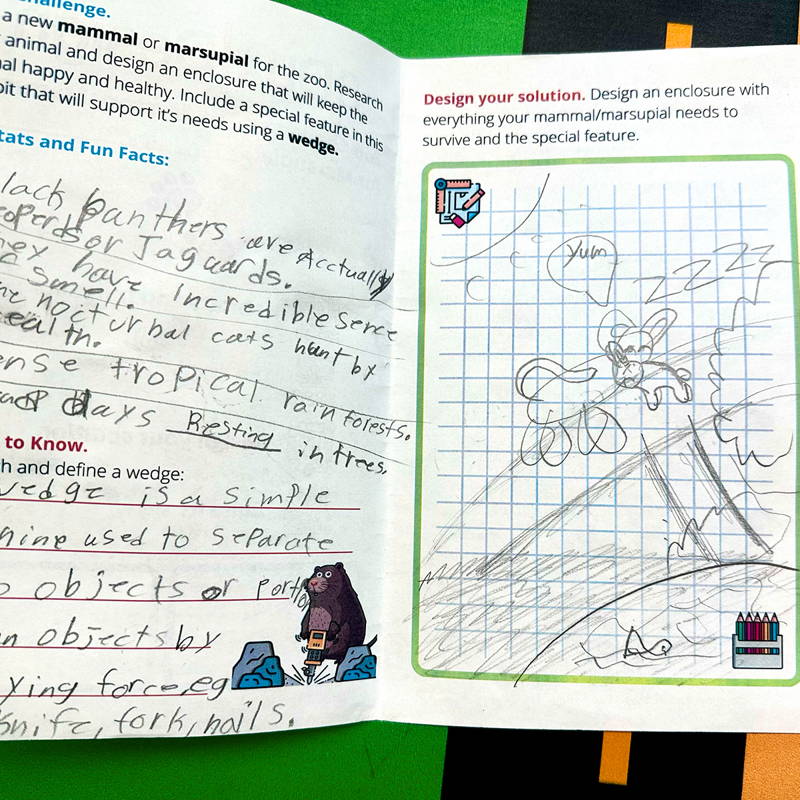 challenge.
a new mammal or marsupial for the zoo. Research
animal and design an enclosure that will keep the
al happy and healthy. Include a special feature in this
bit that will support it's needs using a wedge.
tats and Fun Facts:
lack panthers are Acctually
eoperds or Jaguards.
hey have Incredible sence
smell.
nocturnal cats hunt by
ealth.
ense tropical rainforests.
days Resting in trees.
to Know.
h and define a wedge:
wedge is a simple
hine used to separate
o objects or
n objects by
ying force, eg
knife, fork, nails.
Design your solution. Design an enclosure with
everything your mammal/marsupial needs to
survive and the special feature.
Yum
zzzz